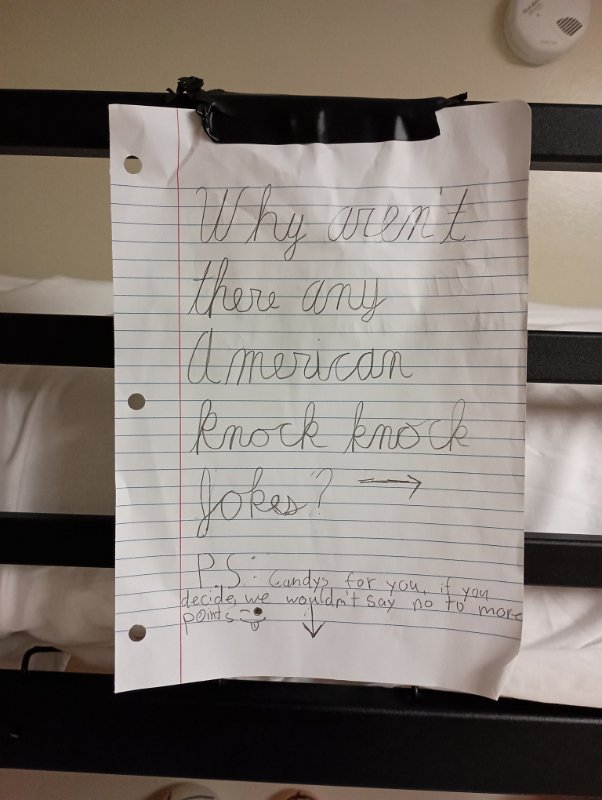 Why aren't
there any
American
knock knock
Jokes? →
P.S: Candys for you, if you
decide, we wouldn't say no to more
points